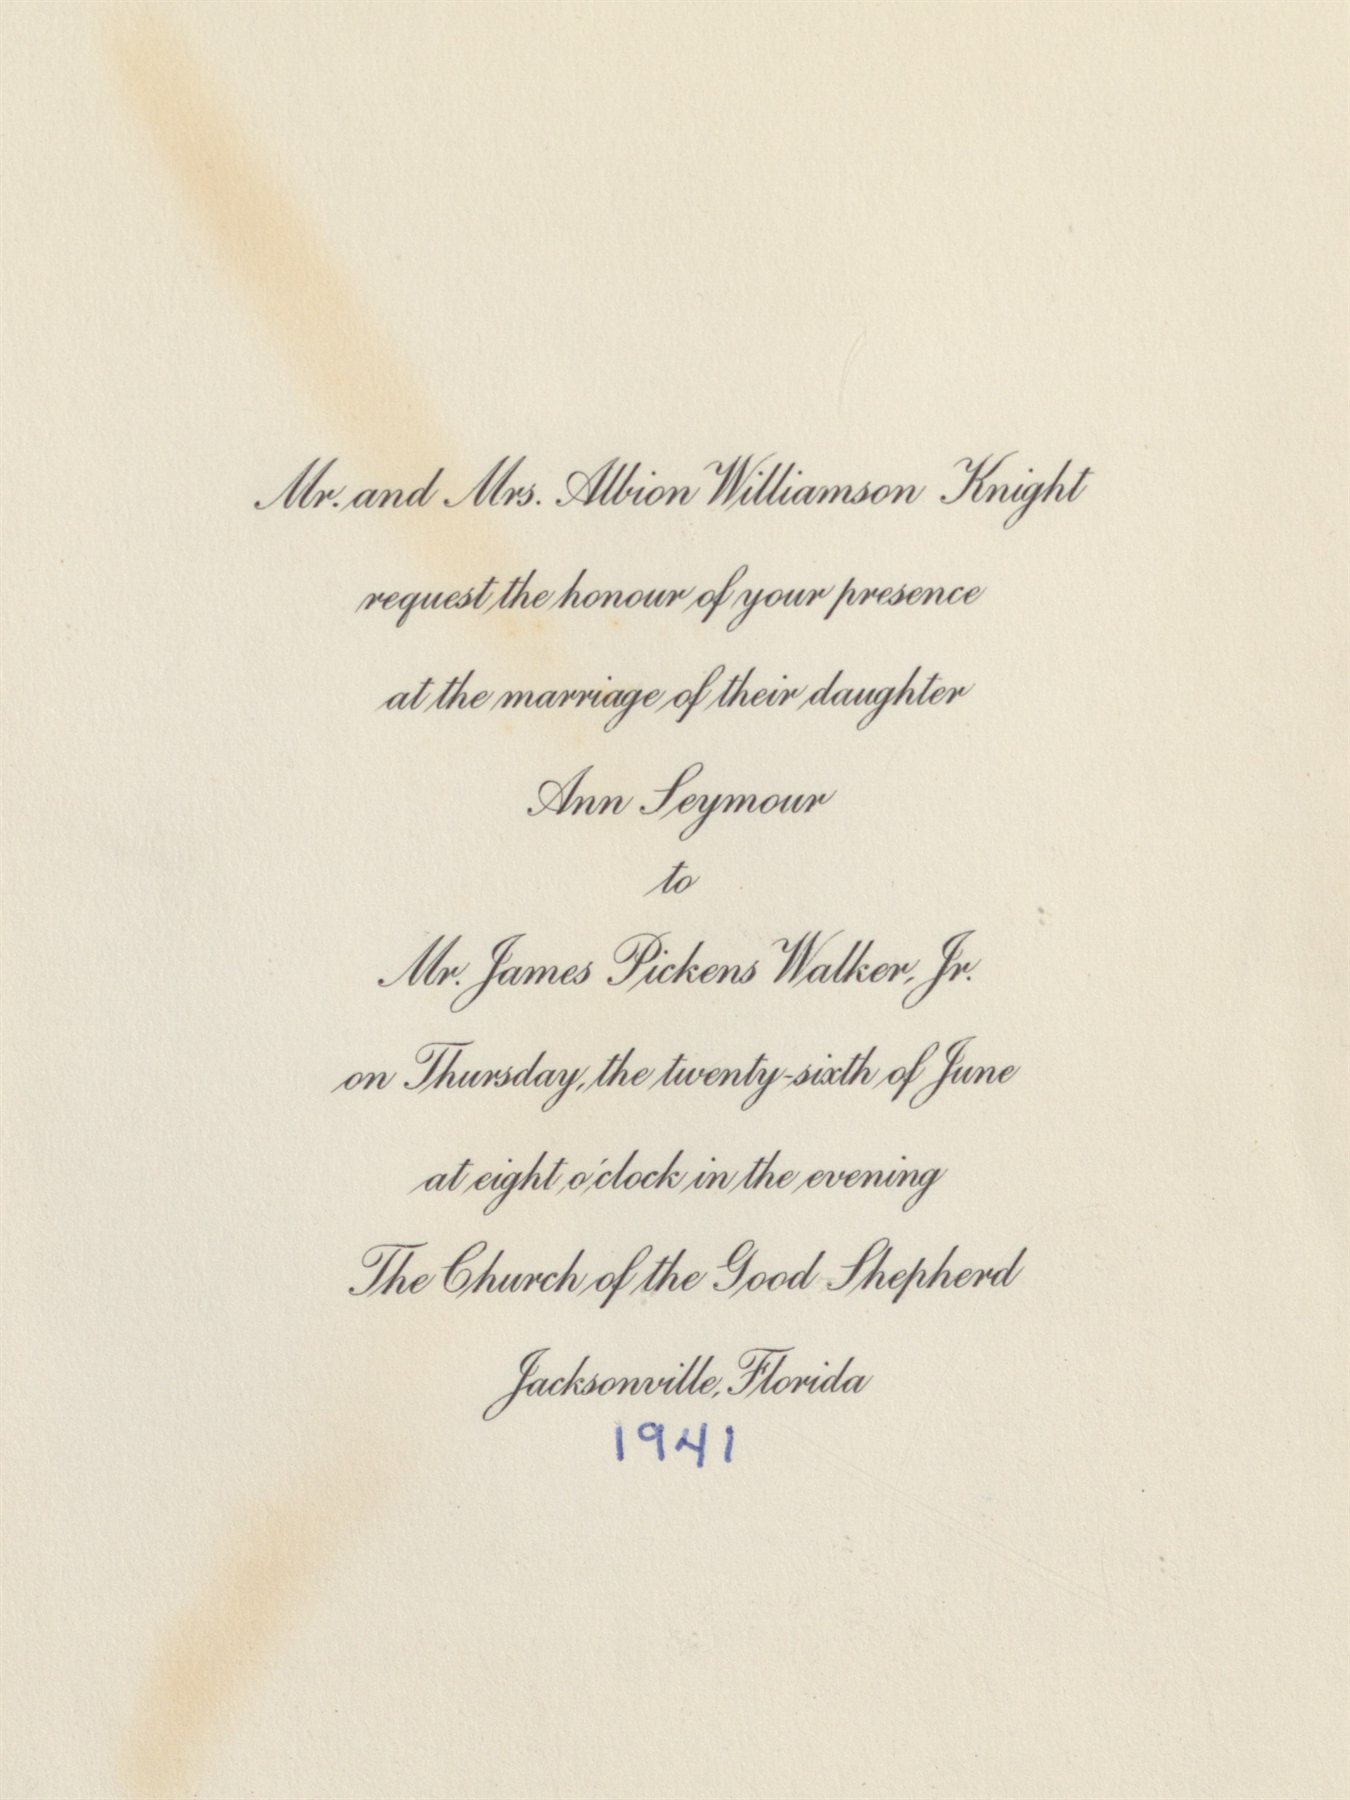 Mr. and Mrs. Albion Williamson Knight
request the honour of your presence
at the marriage of their daughter
Ann Seymour
to
Mr. James Pickens Walker, Jr.
on Thursday, the twenty-sixth of June
at eight o'clock in the evening
The Church of the Good Shepherd
Jacksonville, Florida
1941